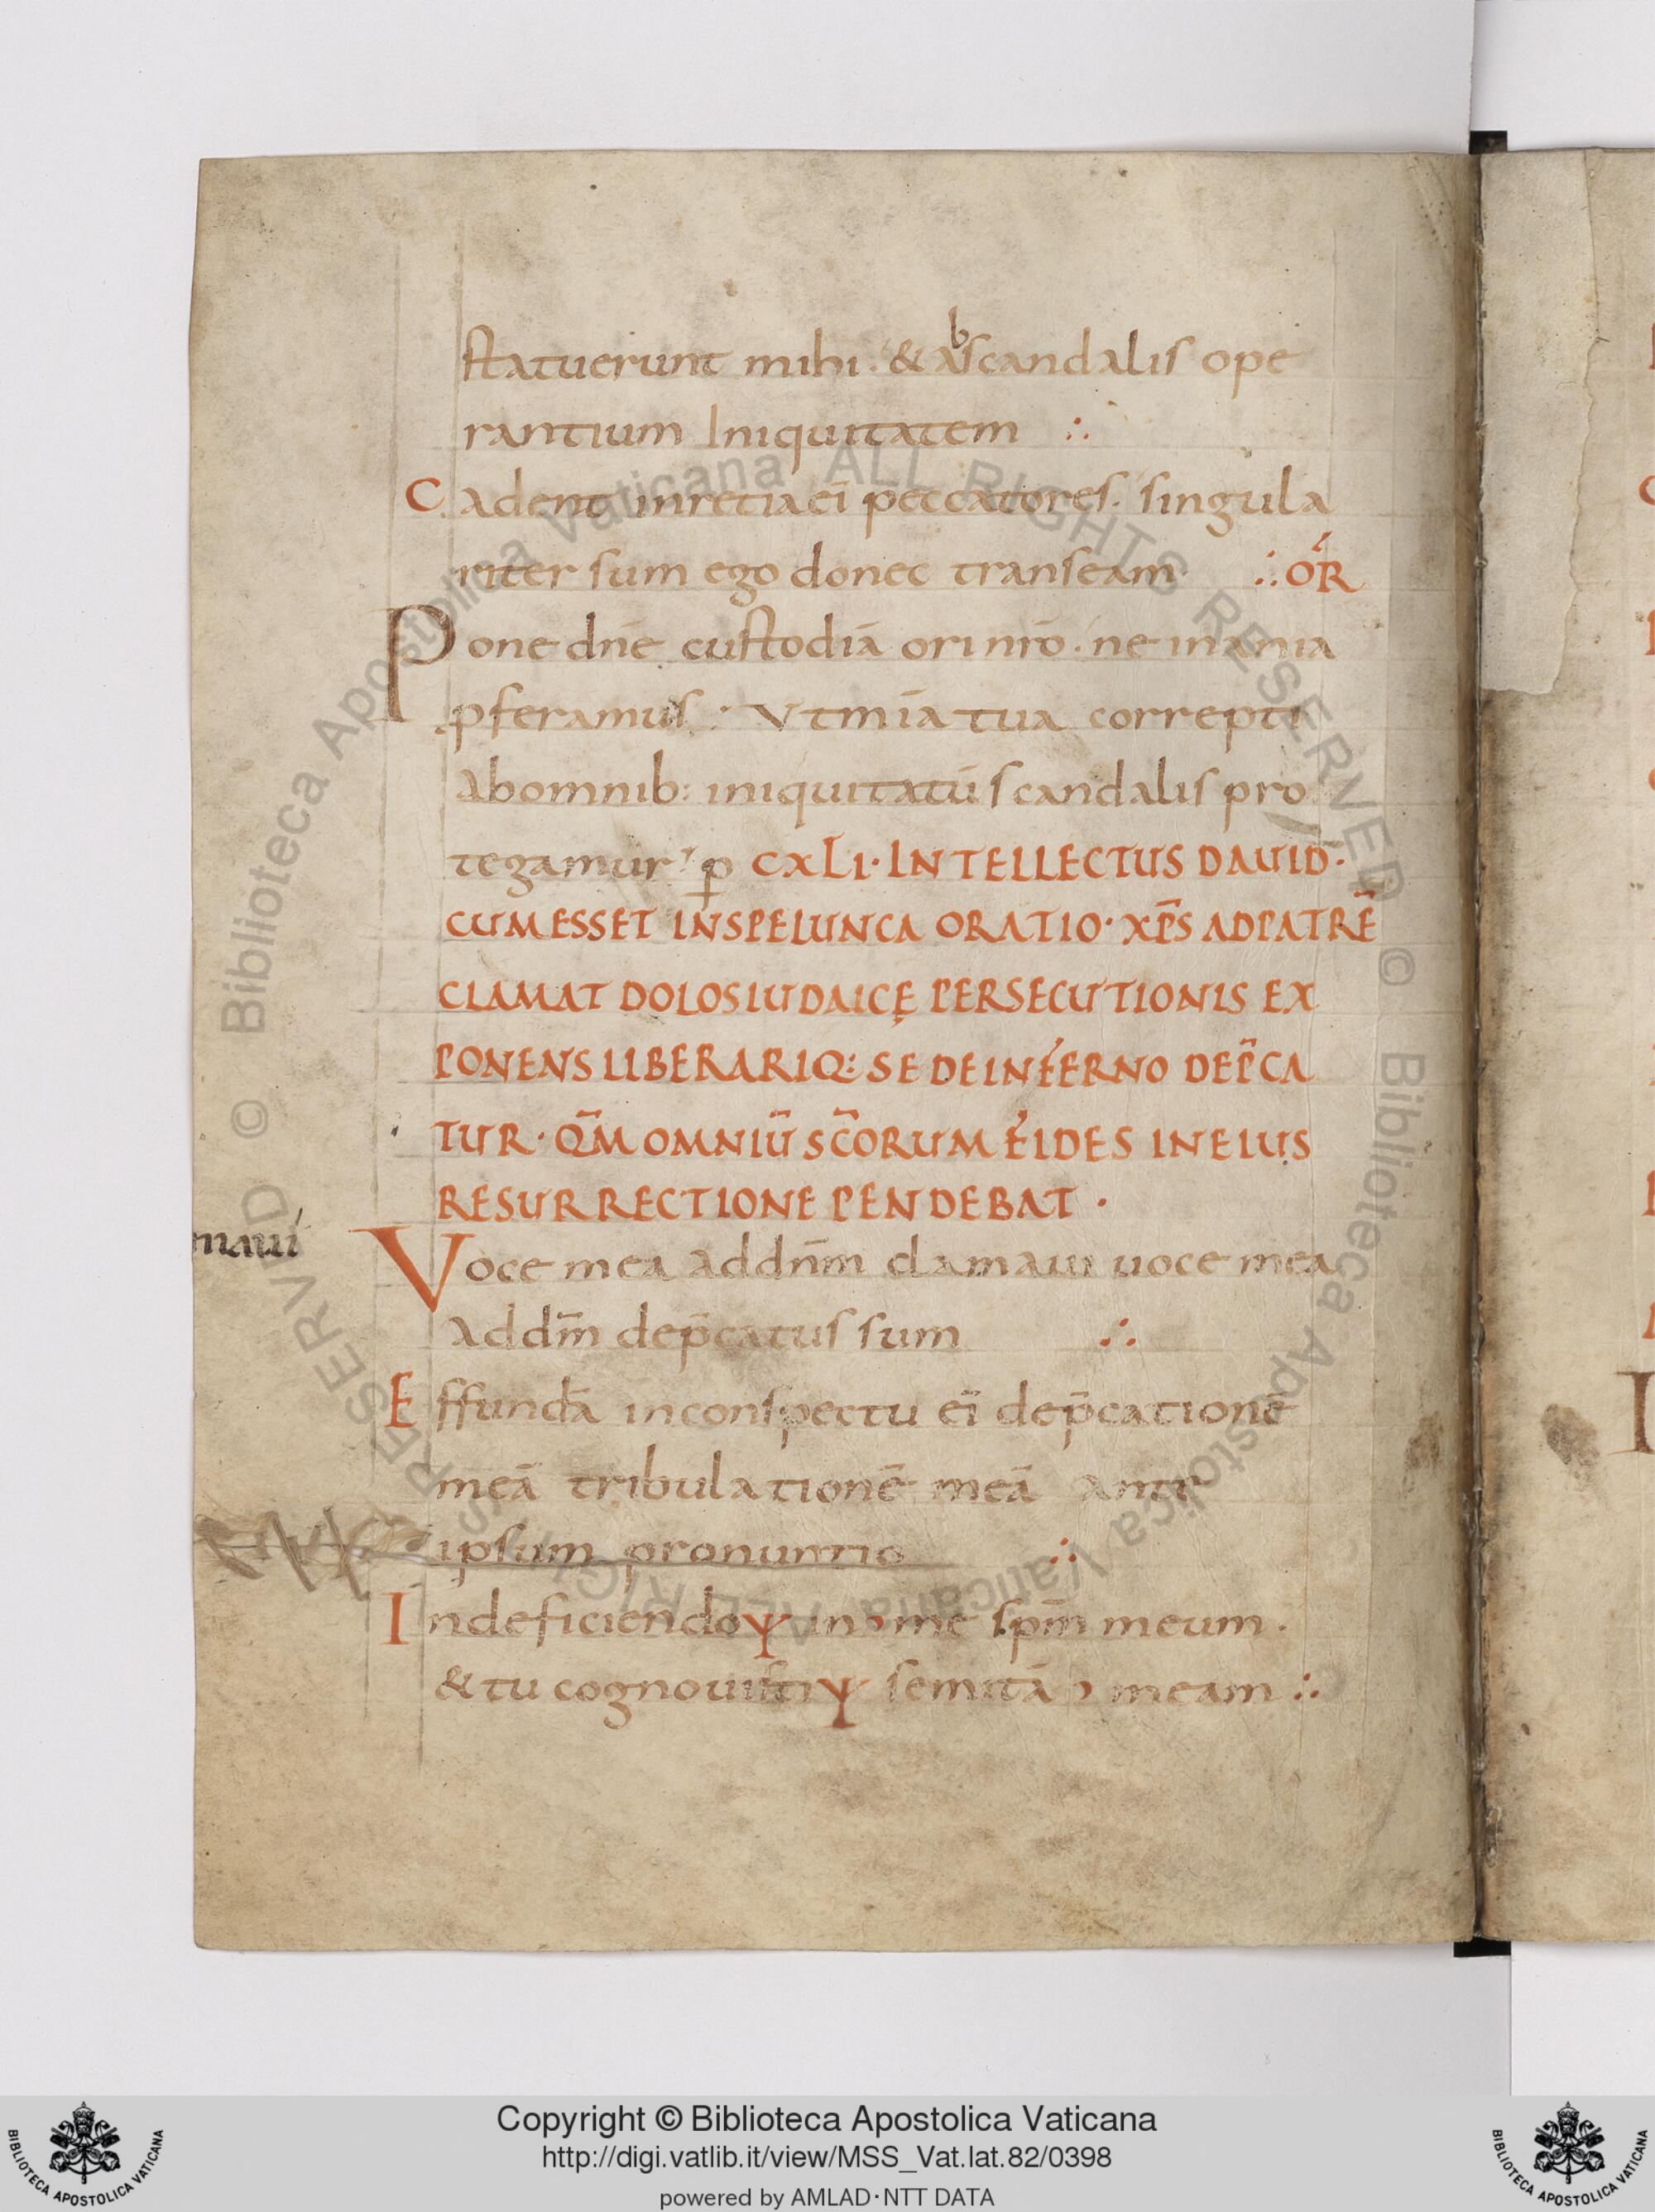 statuerunt mihi. & abscandalis ope
rantium Iniquitatem ∴
Cadent inretia ei̅ peccatores. singula
riter sum ego donec transeam ∴ OR̅
Pone dn̅e custodiā ori nr̅o. ne inania
pferamus. Ut mi̅a tua correpti
abomnib: iniquitatū scandalis pro
tegamur. p̱ CXLI. INTELLECTUS DAUID.
CUM ESSET INSPELUNCA ORATIO. XP̅S ADPATRĒ
CLAMAT DOLOS IUDAICĘ PERSECUTIONIS EX
PONENS LIBERARIQ: SE DE INFERNO DEP̅CA
TUR. QM̅ OMNIŪ SC̅ORUM FIDES INEIUS
RESURRECTIONE PENDEBAT.
maui
Voce mea addn̅m clamaui uoce mea
addm̅ dep̅catus sum ∴
Effundā inconspectu ei̅ dep̅cationē
meā tribulationē meā ante
ipsum pronuntio ∴
Indeficiendo Ɏ in ɔ me sp̅m meum.
& tu cognouisti Ɏ semitā ɔ meam ∴
© Biblioteca Apostolica Vaticana ALL RIGHTS RESERVED © Biblioteca Apostolica Vaticana ALL RIGHTS RESERVED
Copyright © Biblioteca Apostolica Vaticana
http://digi.vatlib.it/view/MSS_Vat.lat.82/0398
powered by AMLAD·NTT DATA
BIBLIOTECA APOSTOLICA VATICANA
BIBLIOTECA APOSTOLICA VATICANA